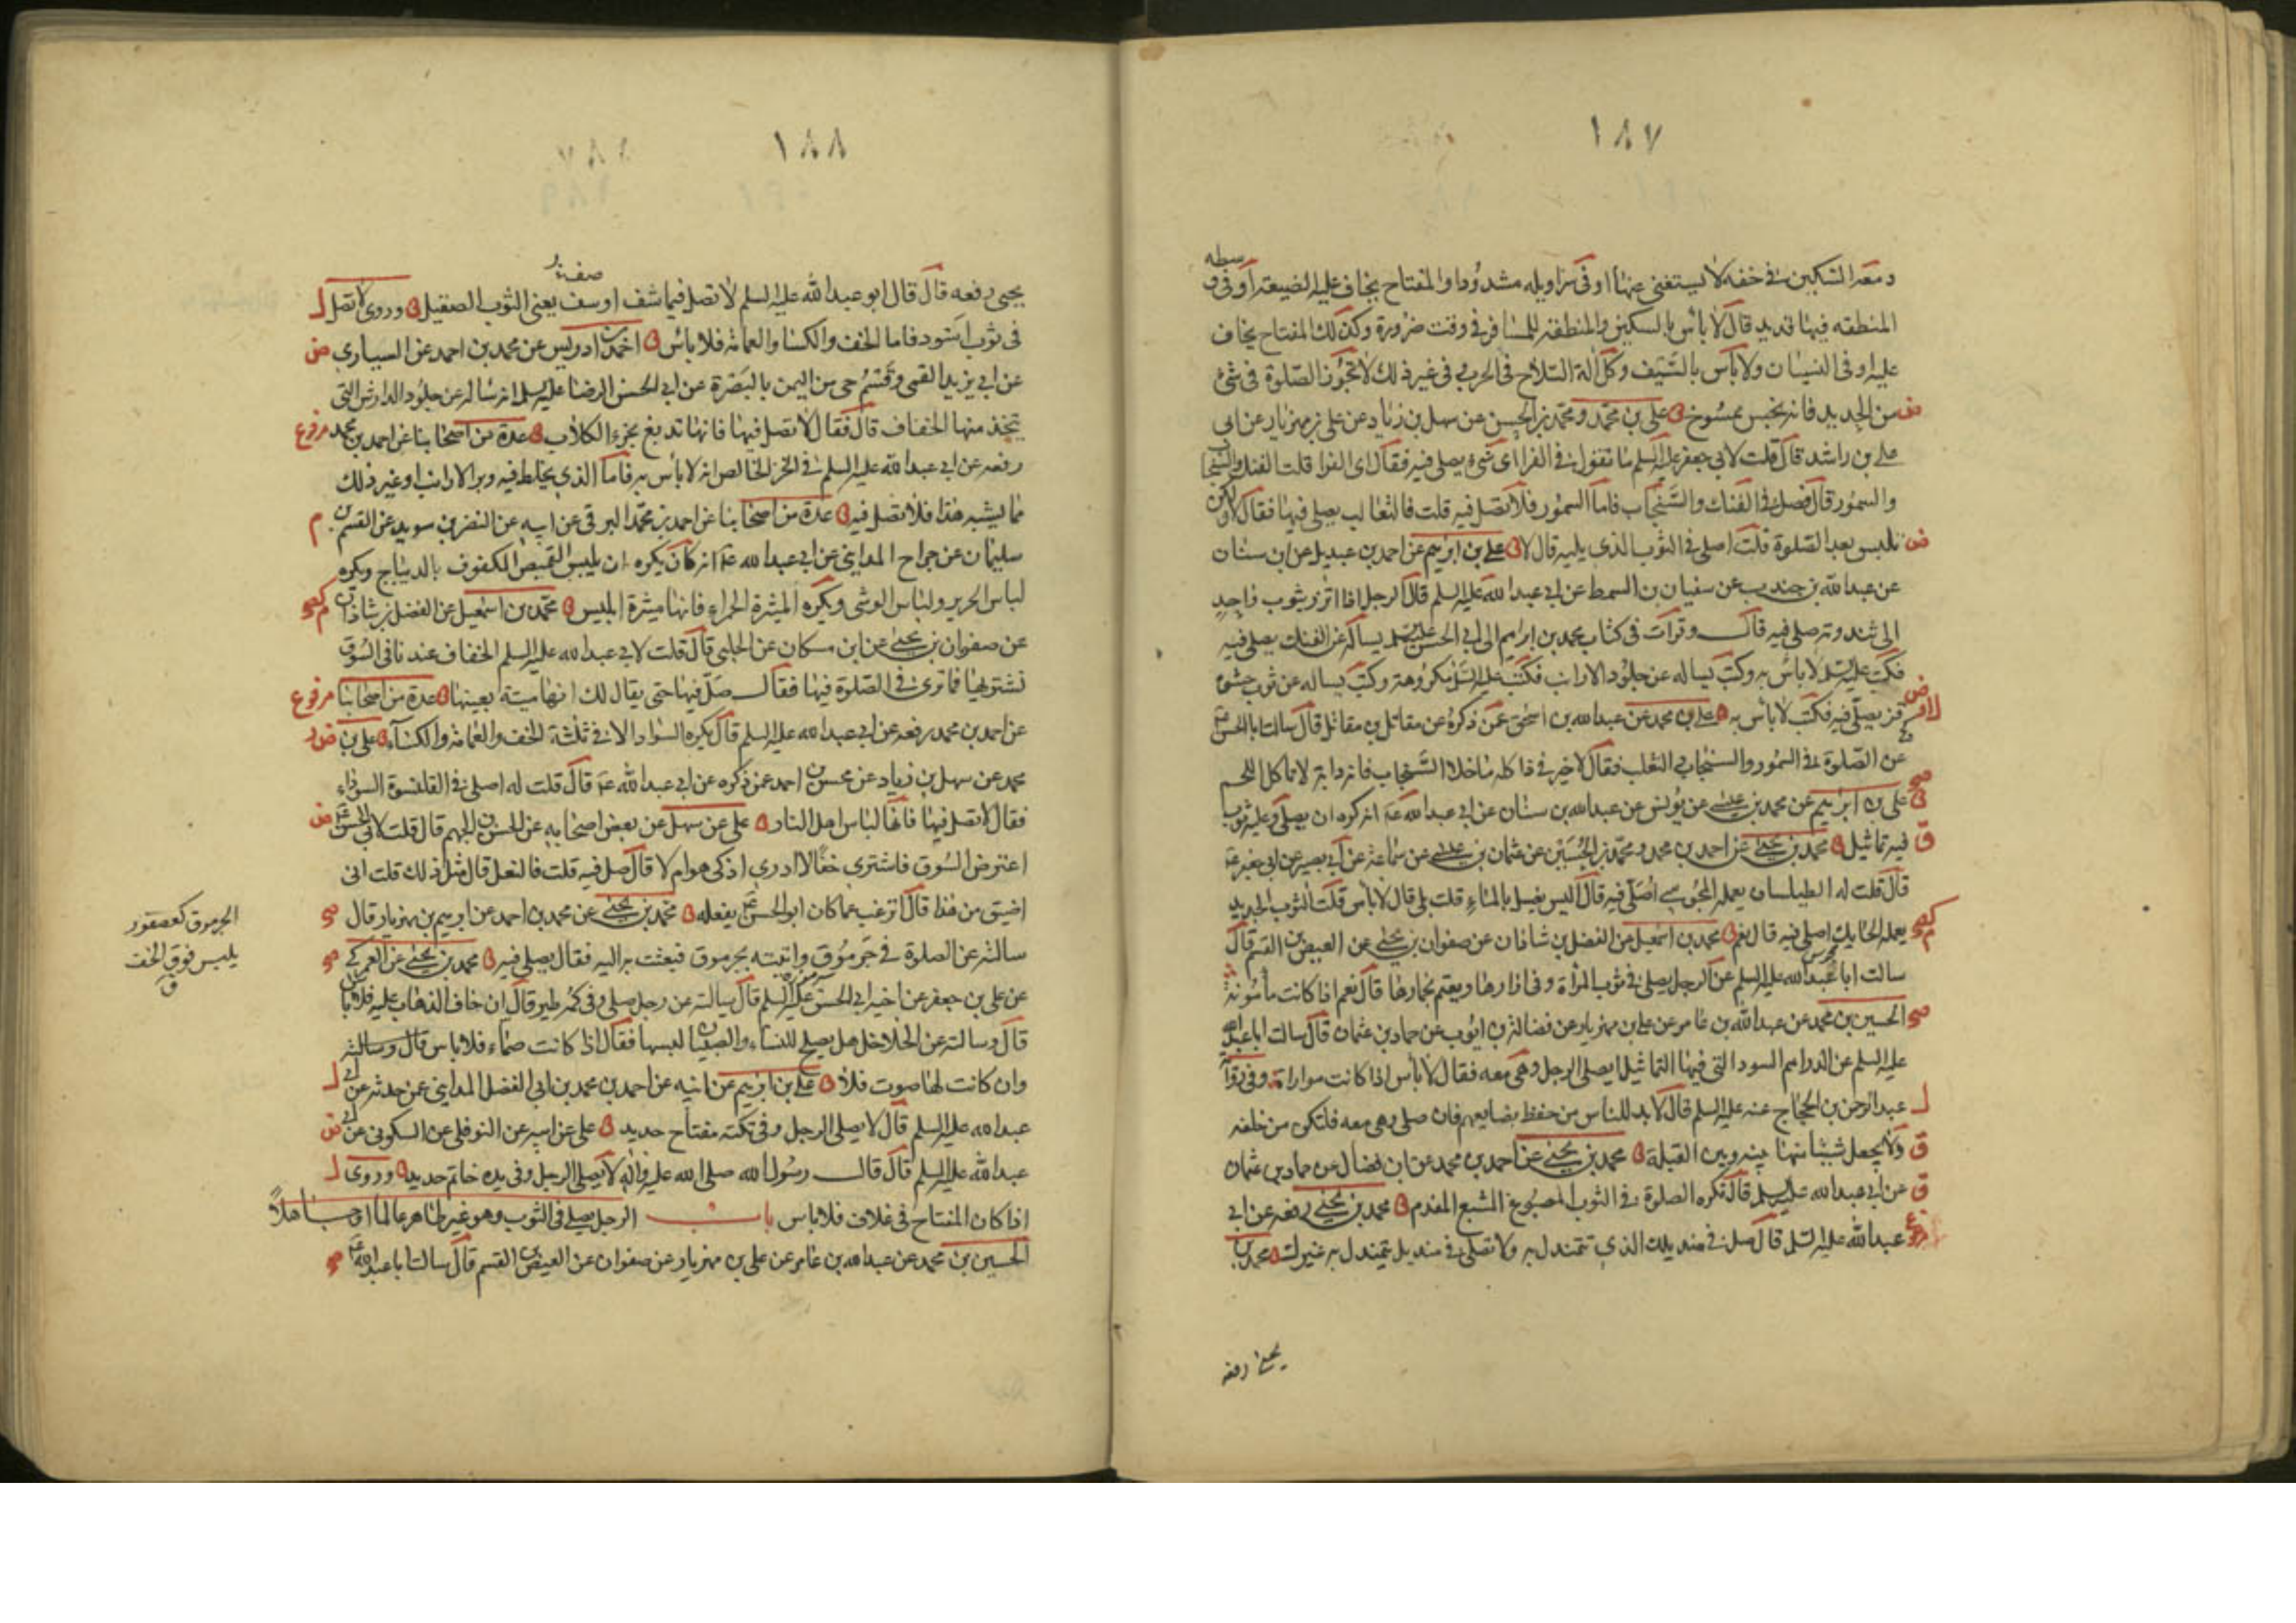 ١٨٧
وسطه
ومعه السكين في خفه لا يستغني عنها او في سراويله مشدودا والمفتاح يخاف عليه الضيعة او في
المنطقه فيها حديد قال لا باس بالسكين والمنطقة للمسافر في وقت ضرورة وكذلك المفتاح يخاف
عليه او في النسيان ولا باس بالسيف وكل الة السلاح في الحرب وفي غير ذلك لا تجوز الصلوة في شئ
من الحديد فانه نجس ممسوخ علي بن محمد ومحمد بن الحسن عن سهل بن زياد عن علي بن مهزيار عن ابي
علي بن راشد قال قلت لابي جعفر عليه السلم ما تقول في الفرا اي شئ يصلى فيه فقال اي الفرا قلت الفنك والسنجاب
والسمور قال فصل في الفنك والسنجاب فاما السمور فلا تصل فيه قلت فالثعالب يصلى فيها فقال لا ولكن
تلبس بعد الصلوة قلت اصلي في الثوب الذي يليه قال لا علي بن ابرهيم عن احمد بن عبديل عن ابن سنان
عن عبد الله بن جندب عن سفيان بن السمط عن ابي عبد الله عليه السلم قال الرجل اذا اتزر بثوب واحد
الى ثندوته صلى فيه قال وقرات في كتاب محمد بن ابراهيم الى ابي الحسن عليه السلم يساله عن الفنك يصلى فيه
فكتب عليه السلم لا باس به وكتب يساله عن جلود الارانب فكتب عليه السلم مكروهة وكتب يساله عن ثوب حشوه
قز يصلى فيه فكتب لا باس به علي بن محمد عن عبد الله بن اسحق عمن ذكره عن مقاتل بن مقاتل قال سالت ابا الحسن
عن الصلوة في السمور والسنجاب والثعلب فقال لا خير في ذا كله ما خلا السنجاب فانه دابة لا تاكل اللحم
علي بن ابرهيم عن محمد بن عيسى عن يونس عن عبد الله بن سنان عن ابي عبد الله عه انه كره ان يصلى وعليه ثوب
فيه تماثيل محمد بن يحيى عن احمد بن محمد ومحمد بن الحسين عن عثمان بن عيسى عن سماعة عن ابي بصير عن ابي جعفر عه
قال قلت له الطيلسان يعمله المجوسي اصلي فيه قال اليس يغسل بالماء قلت بلى قال لا باس قلت الثوب الجديد
يعمله الحايك اصلي فيه قال نعم محمد بن اسمعيل عن الفضل بن شاذان عن صفوان بن يحيى عن العيص بن القسم قال
سالت ابا عبد الله عليه السلم عن الرجل يصلي في ثوب المرأة وفي ازارها ويعتم بخمارها قال نعم اذا كانت مأمونة
الحسين بن محمد عن عبد الله بن عامر عن علي بن مهزيار عن فضالة بن ايوب عن حماد بن عثمان قال سالت ابا عبد الله
عليه السلم عن الدراهم السود التي فيها التماثيل ايصلي الرجل وهي معه فقال لا باس اذا كانت مواراة وفي رواية
عبد الرحمن بن الحجاج عنه عليه السلم قال لا بد للناس من حفظ بضايعهم فان صلى وهي معه فلتكن من خلفه
ولا يجعل شيئا منها بينه وبين القبلة محمد بن يحيى عن احمد بن محمد عن ابن فضال عن حماد بن عثمان
عن ابي عبد الله عليه السلم قال تكره الصلوة في الثوب المصبوغ المشبع المفدم محمد بن يحيى رفعه عن ابي
عبد الله عليه السلم قال صل في منديلك الذي تتمندل به ولا تصلي في منديل يتمندل به غيرك محمد بن
يحيى رفعه
١٨٨
يحيى رفعه قال قال ابو عبد الله عليه السلم لا تصل فيما شف او سف يعني الثوب الصقيل وروي لا تصل
في ثوب اسود فاما الخف والكساء والعمامة فلا باس احمد بن ادريس عن محمد بن احمد عن السياري
عن ابي يزيد القسمي وقسم حي من اليمن بالبصرة عن ابي الحسن الرضا عليه السلم انه ساله عن جلود الدارش التي
يتخذ منها الخفاف قال فقال لا تصل فيها فانها تدبغ بخرء الكلاب عدة من اصحابنا عن احمد بن محمد
رفعه عن ابي عبد الله عليه السلم في الخز الخالص انه لا باس به فاما الذي يخلط فيه وبر الارانب او غير ذلك
مما يشبه هذا فلا تصل فيه عدة من اصحابنا عن احمد بن محمد البرقي عن ابيه عن النضر بن سويد عن القسم بن
سليمان عن جراح المدايني عن ابي عبد الله عه انه كان يكره ان يلبس القميص المكفوف بالديباج ويكره
لباس الحرير ولباس الوشي ويكره الميثرة الحمراء فانها ميثرة ابليس محمد بن اسمعيل عن الفضل بن شاذان
عن صفوان بن يحيى عن ابن مسكان عن الحلبي قال قلت لابي عبد الله عليه السلم الخفاف عندنا في السوق
نشتريها فما ترى في الصلوة فيها فقال صل فيها حتى يقال لك انها ميتة بعينها عدة من اصحابنا
عن احمد بن محمد رفعه عن ابي عبد الله عليه السلم قال يكره السواد الا في ثلثة الخف والعمامة والكساء علي بن
محمد عن سهل بن زياد عن محسن بن احمد عمن ذكره عن ابي عبد الله عه قال قلت له اصلي في القلنسوة السوداء
فقال لا تصل فيها فانها لباس اهل النار علي عن سهل عن بعض اصحابه عن الحسن بن الجهم قال قلت لابي الحسن عه
اعترض السوق فاشتري خفا لا ادري اذكي هو ام لا قال صل فيه قلت فالنعل قال مثل ذلك قلت اني
اضيق من هذا قال اترغب عما كان ابو الحسن عه يفعله محمد بن يحيى عن محمد بن احمد عن ابرهيم بن مهزيار قال
سالته عن الصلوة في جرموق واتيته بجرموق فبعثت به اليه فقال يصلى فيه محمد بن يحيى عن العمركي
عن علي بن جعفر عن اخيه ابي الحسن عليه السلم قال سالته عن رجل صلى وفي كمه طير قال ان خاف الذهاب عليه فلا باس
قال وسالته عن الخلاخل هل يصلح للنساء والصبيان لبسها فقال اذا كانت صماء فلا باس
وان كانت لها صوت فلا علي بن ابرهيم عن ابيه عن احمد بن محمد بن ابي الفضل المدايني عمن حدثه عن ابي
عبد الله عليه السلم قال لا يصلي الرجل وفي تكته مفتاح حديد علي عن ابيه عن النوفلي عن السكوني عن ابي
عبد الله عليه السلم قال قال رسول الله صلى الله عليه واله لا يصلي الرجل وفي يده خاتم حديد وروي
اذا كان المفتاح في غلاف فلا باس باب الرجل يصلي في الثوب وهو غير طاهر عالما او جاهلا
الحسين بن محمد عن عبد الله بن عامر عن علي بن مهزيار عن صفوان عن العيص بن القسم قال سالت ابا عبد الله عه
الجرموق كعصفور
يلبس فوق الخف
ق